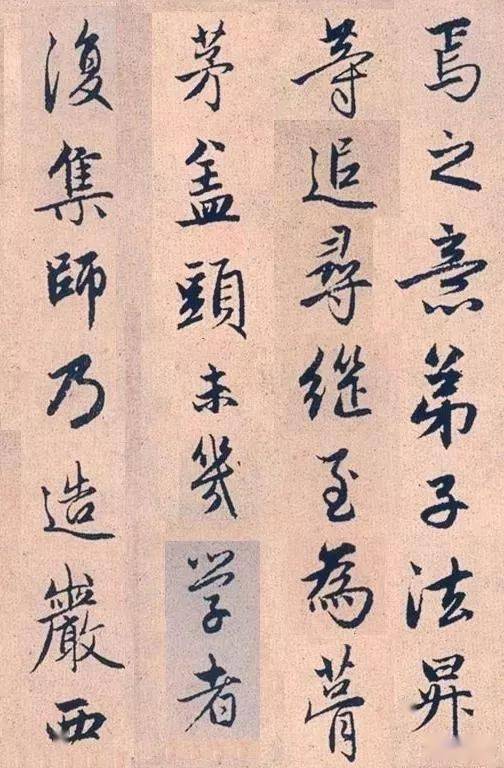 焉之意弟子法昇
等追尋継至為葺
茅盖頭未幾学者
復集師乃造嚴西